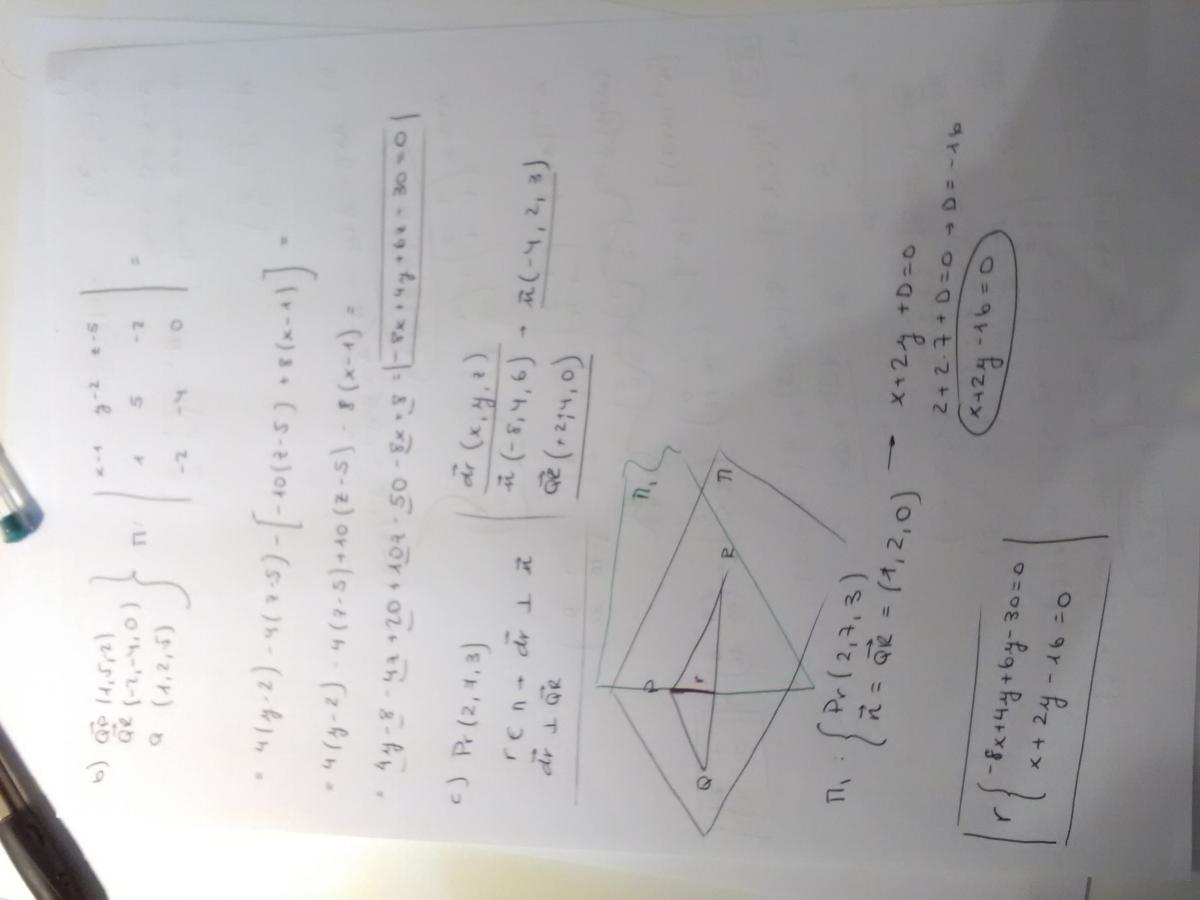 b) QP⃗ (1,5,2)
QR⃗ (-2,-4,0)
Q (1,2,5)
} π: | x-1 y-2 z-5 |
| 1 5 -2 | =
| -2 -4 0 |
= 4(y-2) - 4(z-5) - [-10(z-5) + 8(x-1)] =
= 4(y-2) - 4(z-5) + 10(z-5) - 8(x-1) =
= 4y - 8 - 4z + 20 + 10z - 50 - 8x + 8 = |-8x + 4y + 6z - 30 = 0|
c) Pr(2,7,3)
r ⊂ π → dr⃗ ⊥ n⃗
dr⃗ ⊥ QR⃗
dr⃗ (x, y, z)
n⃗ (-8, 4, 6) → n⃗ (-4, 2, 3)
QR⃗ (+2, 4, 0)
π₁
P
r
Q
R
π
π₁ : { Pr(2,7,3)
n⃗ = QR⃗ = (1,2,0) → x + 2y + D = 0
2 + 2·7 + D = 0 → D = -16
x + 2y - 16 = 0
r { -8x + 4y + 6y - 30 = 0
x + 2y - 16 = 0